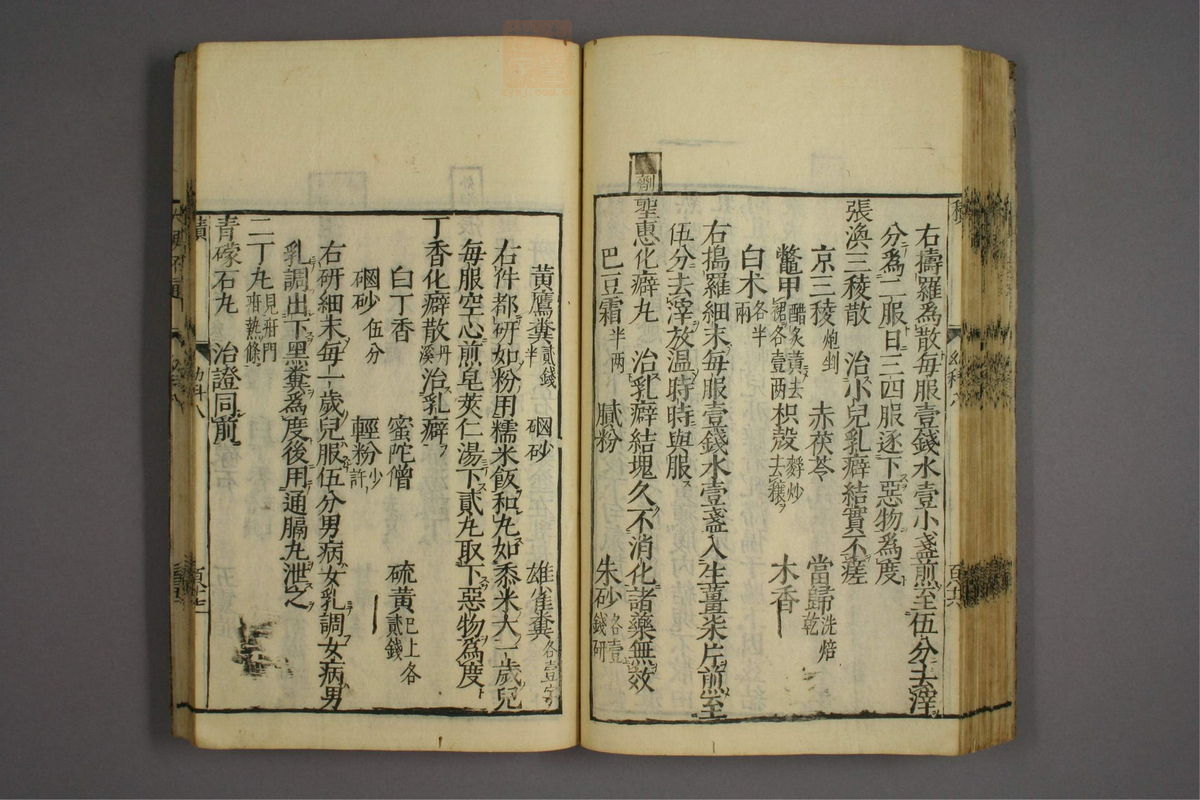 右擣羅爲散每服壹錢水壹小盞煎至伍分去滓
分爲二服日三四服逐下惡物爲度
張渙三稜散 治小兒乳癖結實不瘥
京三稜炮剉 赤茯苓 當歸洗焙乾
鼈甲醋炙黃去裙各壹两 枳殼麩炒去穰 木香
白术各半兩
右搗羅細末每服壹錢水壹盞入生薑柒片煎至
伍分去滓放温時時與服
劑
聖惠化癖丸 治乳癖結塊久不消化諸藥無效
巴豆霜半两 膩粉 朱砂各壹錢研
黃鷹糞貳錢半 硇砂 雄雀糞各壹字
右件都研如粉用糯米飯和丸如黍米大一歲兒
每服空心煎皂莢仁湯下貳丸取下惡物為度
丁香化癖散丹溪 治乳癖
白丁香 蜜陀僧 硫黃已上各貳錢
硇砂伍分 輕粉少許
右研細末每一歲兒服伍分男病女乳調女病男
乳調出下黑糞爲度後用通膈丸泄之
二丁丸見班門齋熱條
青礞石丸 治證同前